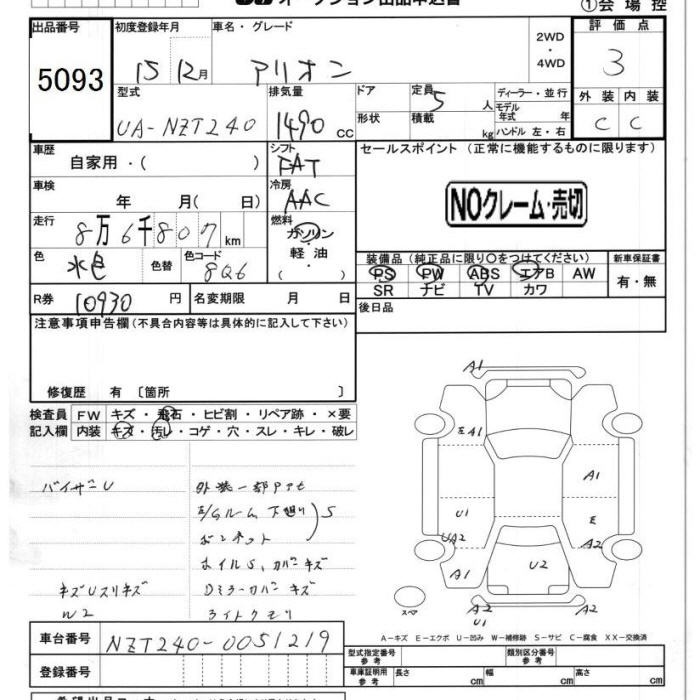 オークション出品申込書
①会場控
出品番号 初度登録年月 車名・グレード 2WD・4WD 評価点
5093 15 12月 アリオン 3
型式 排気量 ドア 定員 5 人 ディーラー・並行 外装 内装
UA-NZT240 1490 cc 形状 積載 kg モデル年式 年 ハンドル 左・右 C C
車歴 自家用・( ) シフト FAT セールスポイント (正常に機能するものに限ります)
車検 年 月( 日) 冷房 AAC
NOクレーム・売切
走行 8万6千807km 燃料 ガソリン・軽油・( )
色 水色 色替 色コード 8Q6
装備品 (純正品に限り○をつけてください) 新車保証書
PS PW ABS エアB AW 有・無
SR ナビ TV カワ
R券 10930 円 名変期限 月 日
後日品
注意事項申告欄(不具合内容等は具体的に記入して下さい)
修復歴 有 〔箇所 〕
検査員記入欄 FW キズ・飛石・ヒビ割・リペア跡・×要
内装 キズ・汚レ・コゲ・穴・スレ・キレ・破レ
バイザーU
外装一部
下廻り S
ボンネット
ホイルS、カバーキズ
キズUスリキズ Dミラーカバーキズ
W2 ライトクモリ
A1
A1
A1
U1
E
UA2
A2
A1
U2
スペア
A2
U1
A2
A-キズ E-エクボ U-凹み W-補修跡 S-サビ C-腐食 XX-交換済
車台番号 NZT240-0051219
登録番号
型式指定番号 参考 類別区分番号 参考
車庫証明用 参考 長さ cm 幅 cm 高さ cm